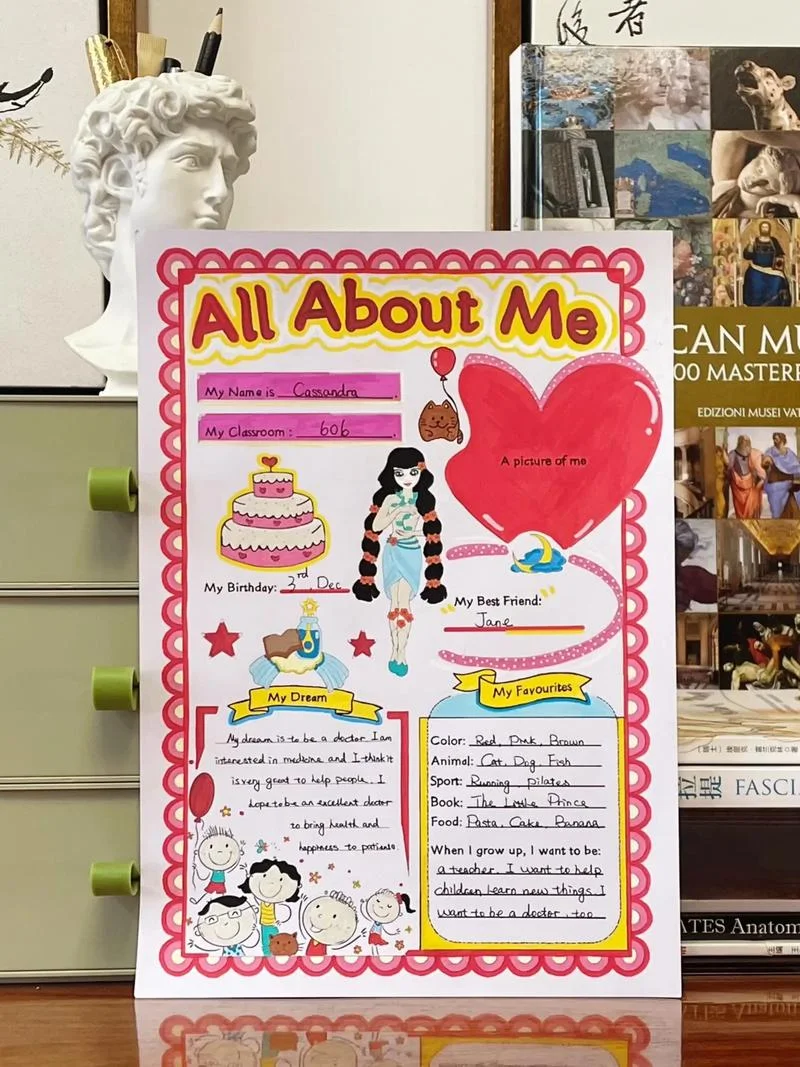 者
All About Me
My Name is Cassandra.
My Classroom: 606.
A picture of me
My Birthday: 3rd, Dec
My Best Friend:
Jane
My Dream
My dream is to be a doctor I am
interested in medicine and I think it
is very great to help people. I
hope to be an excellent doctor
to bring health and
happiness to patients.
My Favourites
Color: Red, Pink, Brown
Animal: Cat, Dog, Fish
Sport: Running, pilates
Book: The Little Prince
Food: Pasta, Cake, Banana
When I grow up, I want to be:
a teacher. I want to help
children learn new things. I
want to be a doctor, too
CAN MU
00 MASTERP
EDIZIONI MUSEI VAT
拉提 FASCI
ATES Anatom